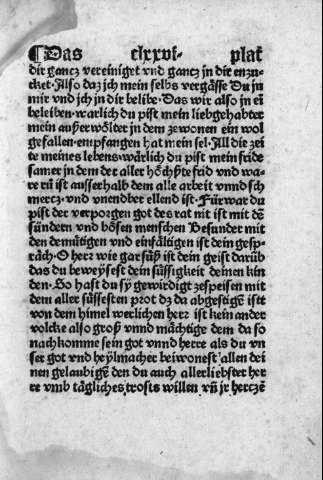 ¶Das clxxvi. plat
dir gancz vereiniget vnd gancz in dir enzu-
cket. Also daz ich mein selbs vergässe Du in
mir vnd ich in dir belibe. Das wir also in eī
beleiben. warlich du pist mein liebgehabter
mein auſzerwölter in dem zewonen ein wol
gefallen. empfangen hat mein sel. All die zei
te meines lebens. wärlich du pist mein fride
samer in dem der aller höchſzte frid vnd wa-
re rū ist ausserhalb dem alle arbeit vnnd sch
mercz. vnd vnendber ellend ist. Fürwar du
pist der verporgen got des rat nit ist mit dē
sündern vnd bösen menschen Besunder mit
den demütigen vnd einfältigen ist dein gesp-
räch. O herr wie gar süſz ist dein geist darūb
das du beweysest dein süssigkeit deinen kin
den. So hast du sy gewirdigt zespeisen mit
dem aller süssesten prot dz da abgestigē istt
von dem himel werlichen herr ist kein ander
volcke also groſz vnnd mächtige dem da so
nach komme sein got vnnd herre als du vn
ser got vnd heylmacher beiwonest allen dei
nen gelaubigē den du auch allerliebster her
re vmb tägliches trosts willen vñ jr herczē